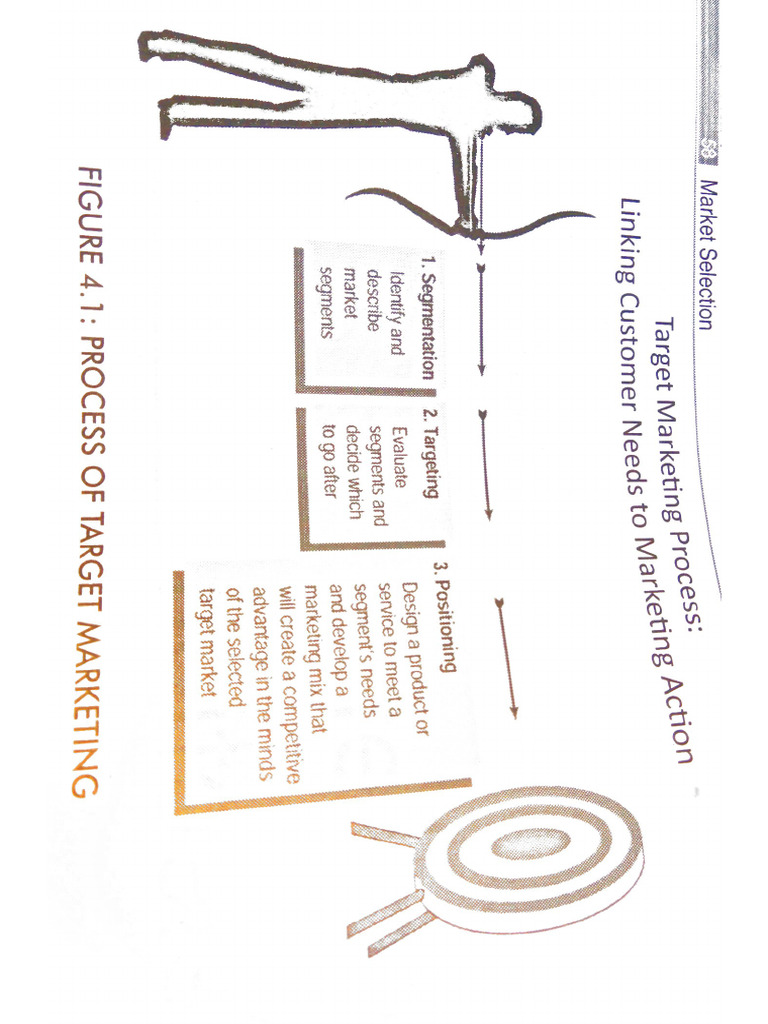 58 Market Selection
Target Marketing Process:
Linking Customer Needs to Marketing Action
1. Segmentation
Identify and
describe
market
segments
2. Targeting
Evaluate
segments and
decide which
to go after
3. Positioning
Design a product or
service to meet a
segment's needs
and develop a
marketing mix that
will create a competitive
advantage in the minds
of the selected
target market
FIGURE 4.1: PROCESS OF TARGET MARKETING